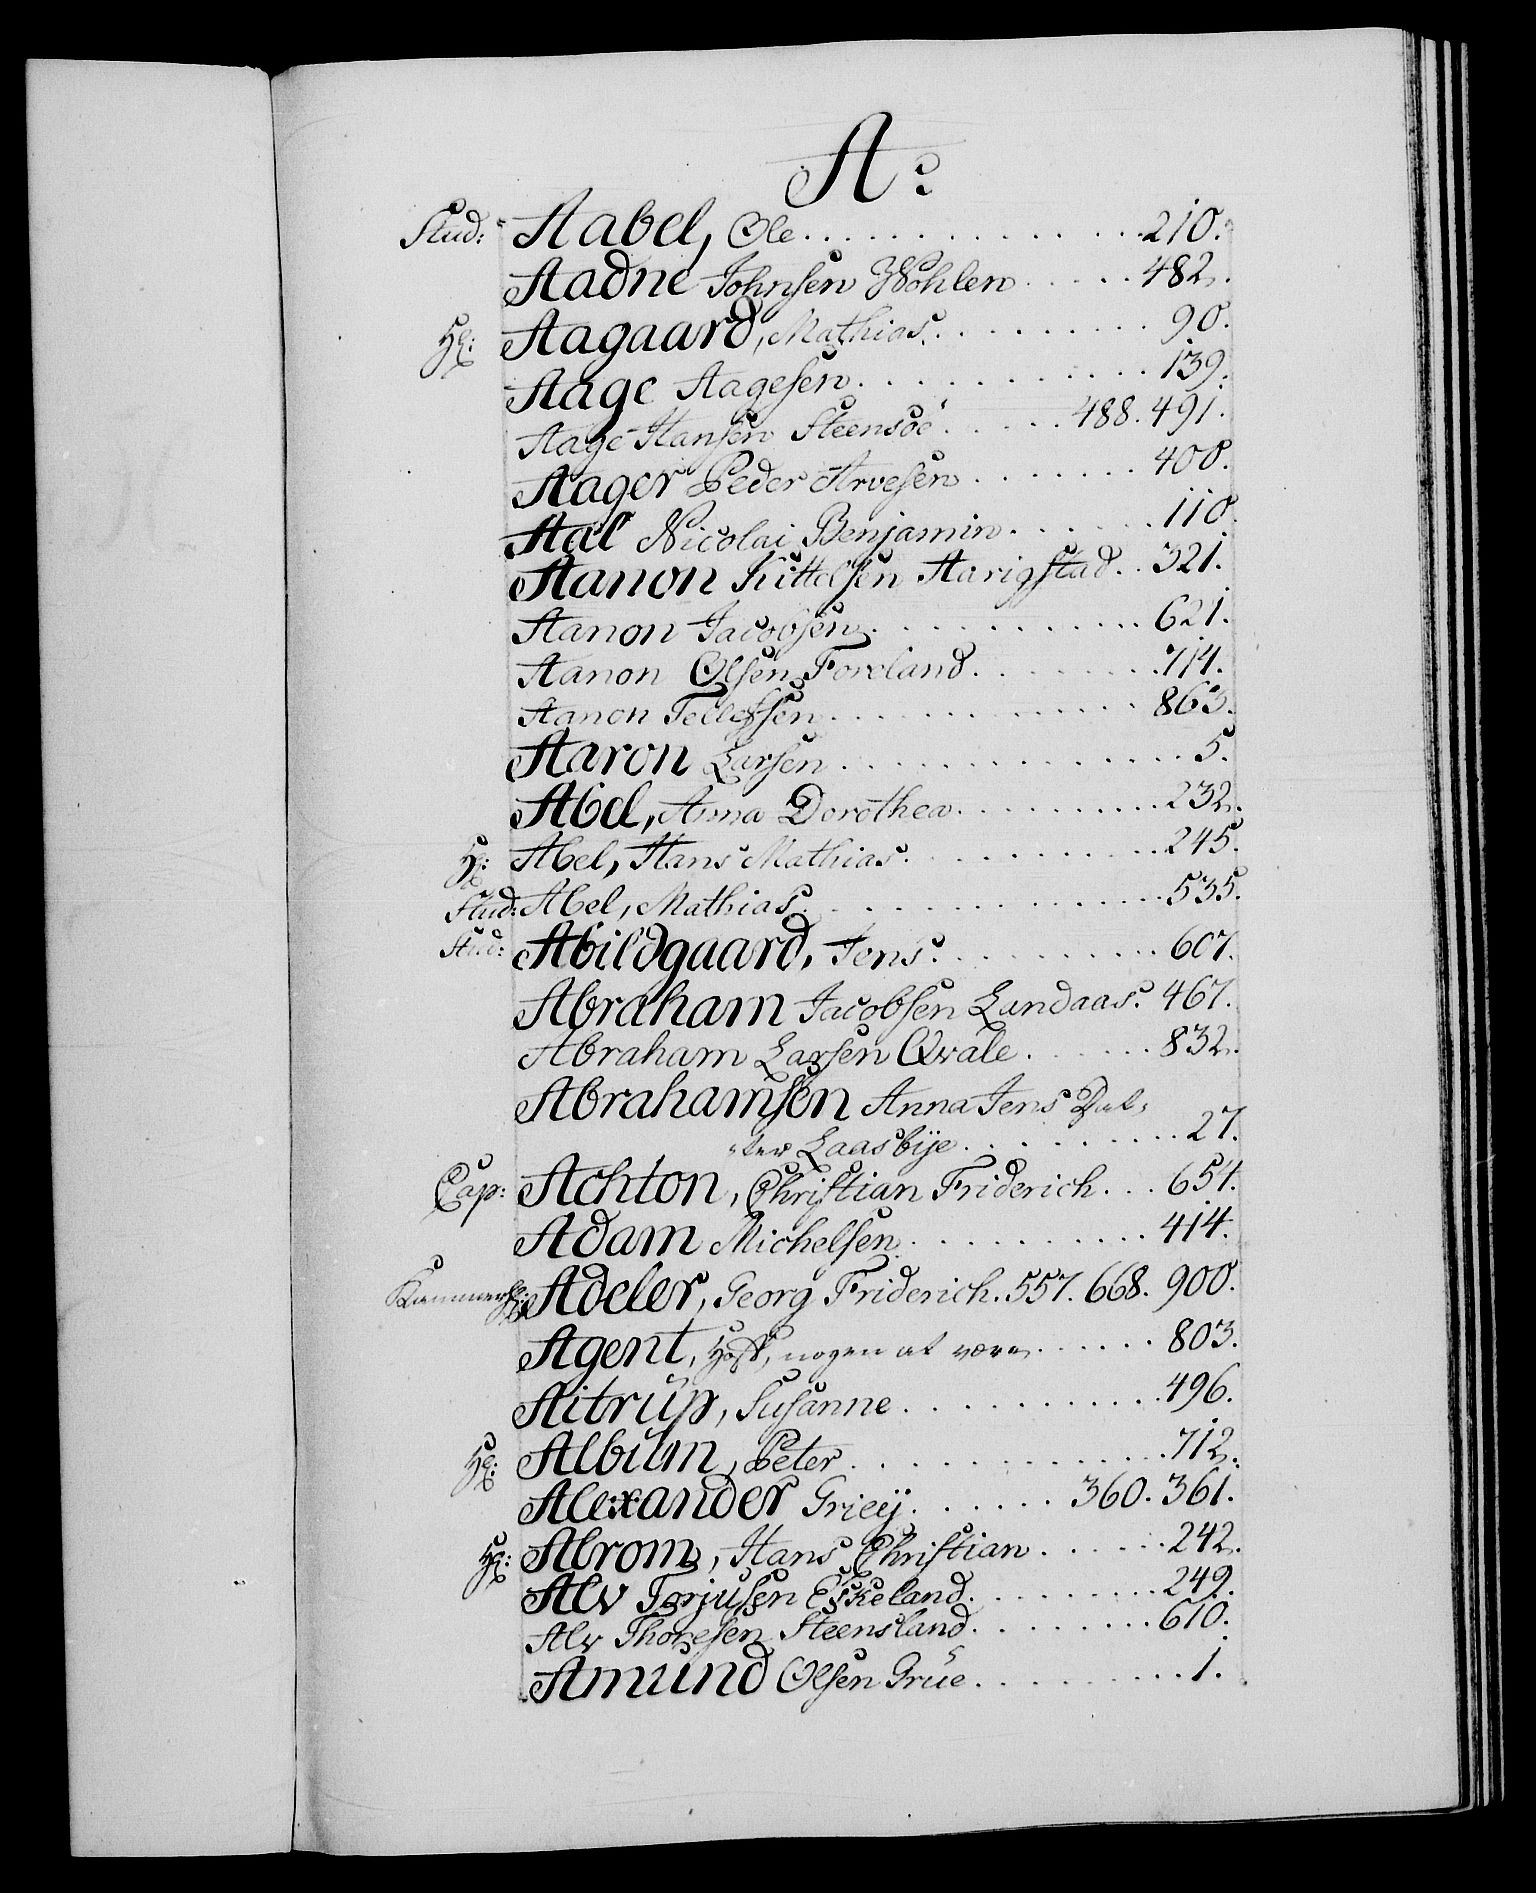 A:
Stud: Aabel, Ole . . . . . . . . . . . . . . . 210.
Aadne Johnsen Wohlen . . . . . 482.
Hr: Aagaard, Mathias . . . . . . . . . . 90.
Aage Aagesen . . . . . . . . . . . . 139.
Aage Hansen Steensöe . . . . . 488. 491.
Aager Peder Arvesen . . . . . . . . 400.
Aal Nicolai Benjamin . . . . . . . 110.
Aanon Kittelsen Aarigstad . . 321.
Aanon Jacobsen . . . . . . . . . . . 621.
Aanon Olsen Foreland . . . . . . . . 714.
Aanon Tellefsen . . . . . . . . . . . . . . 863.
Aaron Larsen . . . . . . . . . . . . . . . 5.
Abel, Anna Dorothea . . . . . . . . . . 232.
Hr: Abel, Hans Mathias . . . . . . . . . . . 245.
Stud: Abel, Mathias . . . . . . . . . . . . . . . 535.
Stud: Abildgaard, Jens . . . . . . . . . . 607.
Abraham Jacobsen Landaas. 467.
Abraham Larsen Qvale . . . . . . 832.
Abrahamsen Anna Jens Dat,
,ter Laasbÿe . . . . . . . . . . 27.
Cap: Achton, Christian Friderich . . . 654.
Adam Michelsen . . . . . . . . . . . 414.
Kammerhr: Adeler, Georg Friderich. 557. 668. 900.
Agent, Hof, nogen at være . . . . . . 803.
Aitrup, Susanne . . . . . . . . . . . . 496.
Hr: Album, Peter . . . . . . . . . . . . . . 712.
Alexander Grieÿ . . . . . . . 360. 361.
Hr: Alrom, Hans Christian . . . . . . 242.
Alv Torjusen Eskeland . . . . . . . . . 249.
Alv Thoresen Steensland . . . . . . . . 610.
Amund Olsen Grue . . . . . . . . . . 1.